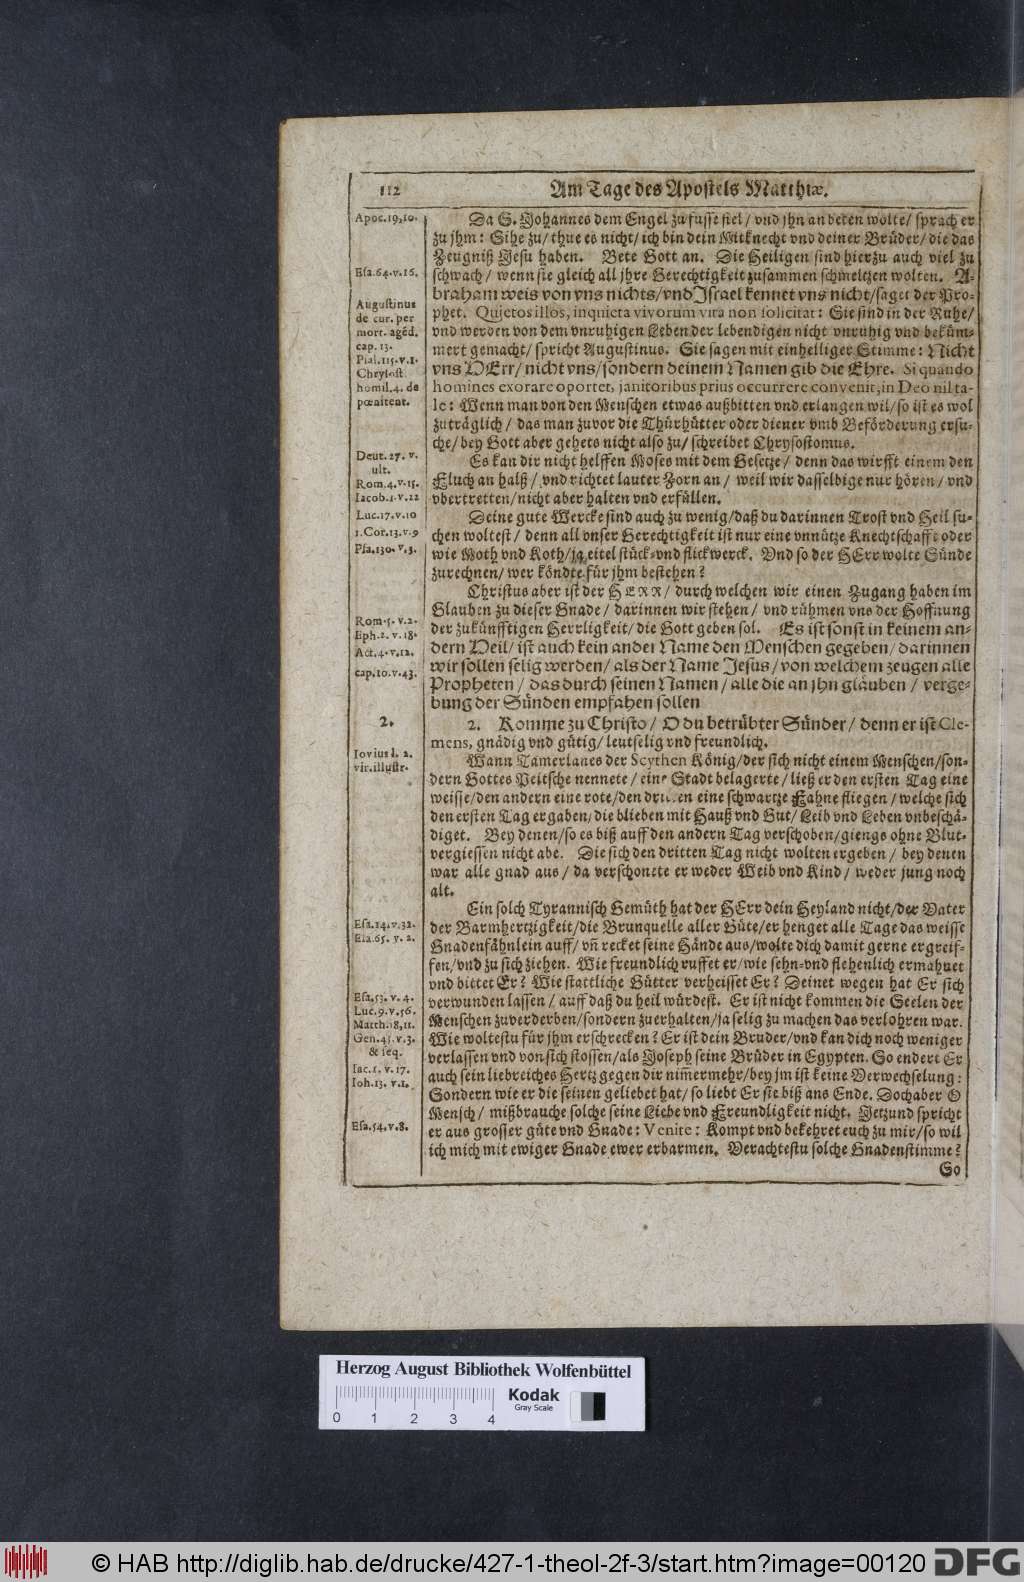 112
Am Tage des Apostels Matthiæ.
Apoc.19,10.
Esa.64.v.16.
Augustinus
de cur. per
mort. agẽd.
cap. 13.
Psal.115.v.1.
Chrysost.
homil.4. de
pœnitent.
Deut. 27. v.
ult.
Rom.4.v.15.
Iacob.1.v.22
Luc.17.v.10
1.Cor.13.v.9
Psa.130.v.3.
Rom.5.v.2.
Eph.2.v.18.
Act.4.v.12.
cap.10.v.43.
2.
Iovius l. 2.
vir.illustr.
Esa.14.v.32.
Esa.65. v. 2.
Esa.53. v. 4.
Luc.9.v.56.
Matth.18,11.
Gen.45.v.3.
& seq.
Iac.1. v.17.
Ioh.13. v.1.
Esa.54.v.8.
Da S. Johannes dem Engel zu fusse fiel/ vnd jhn anbeten wolte/ sprach er
zu jhm: Sihe zu/ thue es nicht/ ich bin dein Mitknecht vnd deiner Brüder/ die das
Zeugniß Jesu haben. Bete Gott an. Die Heiligen sind hierzu auch viel zu
schwach/ wenn sie gleich all jhre Gerechtigkeit zusammen schmeltzen wolten. A-
braham weis von vns nichts/ vnd Israel kennet vns nicht/ saget der Pro-
phet. Quietos illos, inquieta vivorum vita non solicitat: Sie sind in der Ruhe/
vnd werden von dem vnruhigen Leben der lebendigen nicht vnruhig vnd beküm-
mert gemacht/ spricht Augustinus. Sie sagen mit einhelliger Stimme: Nicht
vns HErr/ nicht vns/ sondern deinem Namen gib die Ehre. Si quando
homines exorare oportet, janitoribus prius occurrere convenit, in Deo nil ta-
le: Wenn man von den Menschen etwas außbitten vnd erlangen wil/ so ist es wol
zuträglich/ das man zuvor die Thürhütter oder diener vmb Beförderung ersu-
che/ bey Gott aber gehets nicht also zu/ schreibet Chrysostomus.
Es kan dir nicht helffen Moses mit dem Gesetze/ denn das wirfft einem den
Fluch an halß/ vnd richtet lauter Zorn an/ weil wir dasselbige nur hören/ vnd
vbertretten/ nicht aber halten vnd erfüllen.
Deine gute Wercke sind auch zu wenig/ daß du darinnen Trost vnd Heil su-
chen woltest/ denn all vnser Gerechtigkeit ist nur eine vnnütze Knechtschafft oder
wie Moth vnd Koth/ ja eitel stück- vnd flickwerck. Vnd so der HErr wolte Sünde
zurechnen/ wer köndte für jhm bestehen?
Christus aber ist der HERR/ durch welchen wir einen Zugang haben im
Glauben zu dieser Gnade/ darinnen wir stehen/ vnd rühmen vns der Hoffnung
der zukünfftigen Herrligkeit/ die Gott geben sol. Es ist sonst in keinem an-
dern Heil/ ist auch kein ander Name den Menschen gegeben/ darinnen
wir sollen selig werden/ als der Name Jesus/ von welchem zeugen alle
Propheten/ das durch seinen Namen/ alle die an jhn gläuben/ verge-
bung der Sünden empfahen sollen
2. Komme zu Christo/ O du betrübter Sünder/ denn er ist Cle-
mens, gnädig vnd gütig/ leutselig vnd freundlich.
Wann Tamerlanes der Scythen König/ der sich nicht einem Menschen/ son-
dern Gottes Peitsche nennete/ eine Stadt belagerte/ ließ er den ersten Tag eine
weisse/ den andern eine rote/ den dritten eine schwartze Fahne fliegen/ welche sich
den ersten Tag ergaben/ die blieben mit Hauß vnd Gut/ Leib vnd Leben vnbeschä-
diget. Bey denen/ so es biß auff den andern Tag verschoben/ giengs ohne Blut-
vergiessen nicht abe. Die sich den dritten Tag nicht wolten ergeben/ bey denen
war alle gnad aus/ da verschonete er weder Weib vnd Kind/ weder jung noch
alt.
Ein solch Tyrannisch Gemüth hat der HErr dein Heyland nicht/ der Vater
der Barmhertzigkeit/ die Brunquelle aller Güte/ er henget alle Tage das weisse
Gnadenfähnlein auff/ vñ recket seine Hände aus/ wolte dich damit gerne ergreif-
fen/ vnd zu sich ziehen. Wie freundlich ruffet er/ wie sehn- vnd flehenlich ermahnet
vnd bittet Er? Wie stattliche Gütter verheisset Er? Deinet wegen hat Er sich
verwunden lassen/ auff daß du heil würdest. Er ist nicht kommen die Seelen der
Menschen zuverderben/ sondern zuerhalten/ ja selig zu machen das verlohren war.
Wie woltestu für jhm erschrecken? Er ist dein Bruder/ vnd kan dich noch weniger
verlassen vnd von sich stossen/ als Joseph seine Brüder in Egypten. So endert Er
auch sein liebreiches Hertz gegen dir nim̃ermehr/ bey jm ist keine Verwechselung:
Sondern wie er die seinen geliebet hat/ so liebt Er sie biß ans Ende. Doch aber O
Mensch/ mißbrauche solche seine Liebe vnd Freundligkeit nicht. Jetzund spricht
er aus grosser güte vnd Gnade: Venite: Kompt vnd bekehret euch zu mir/ so wil
ich mich mit ewiger Gnade ewer erbarmen. Verachtestu solche Gnadenstimme?
So
Herzog August Bibliothek Wolfenbüttel
0 1 2 3 4
Kodak
Gray Scale
© HAB http://diglib.hab.de/drucke/427-1-theol-2f-3/start.htm?image=00120
DFG